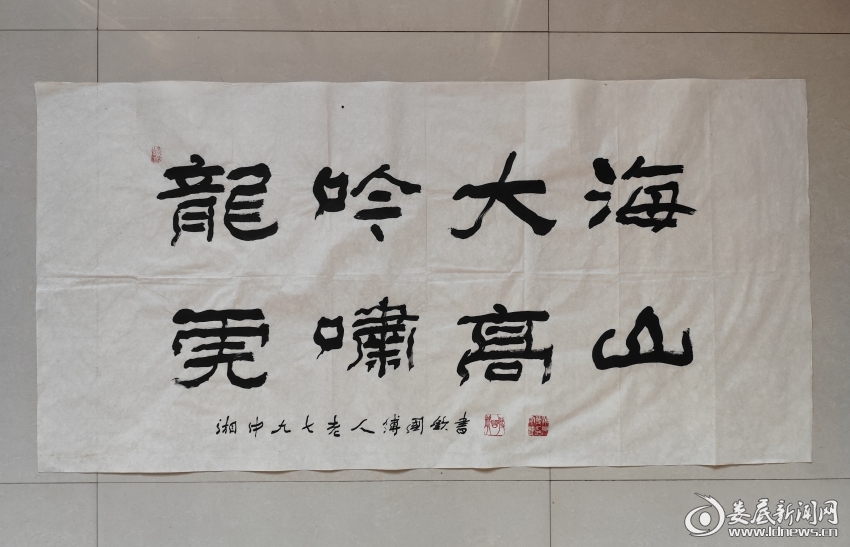 龍吟大海
虎嘯高山
湘中九七老人傅國欽書
娄底新闻网
www.ldnews.cn